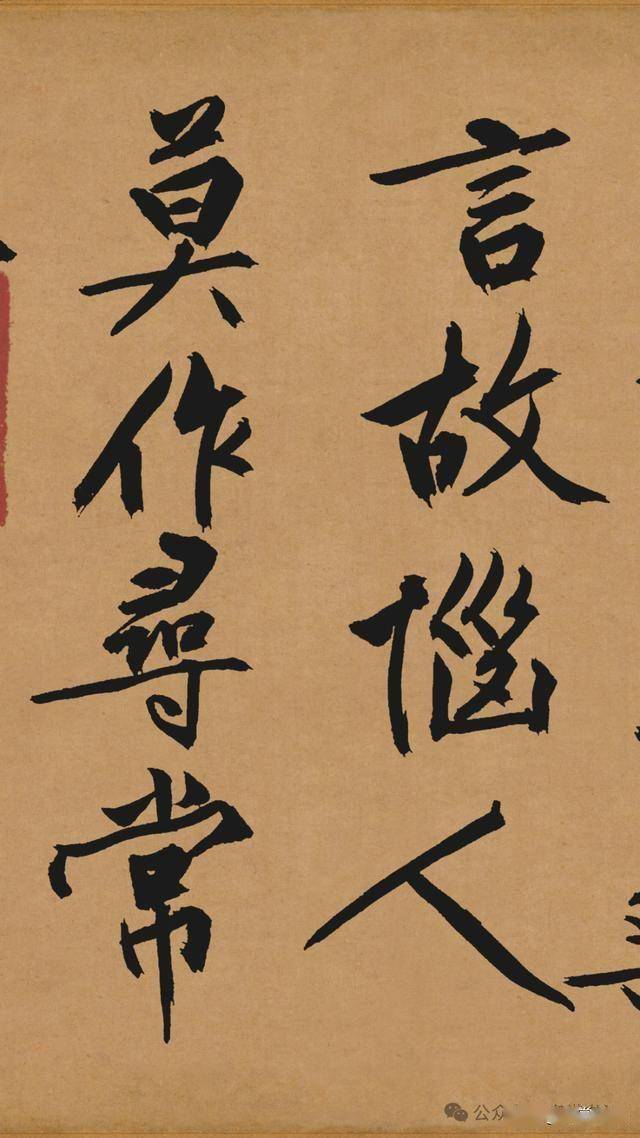 言故惱人
莫作尋常
公众